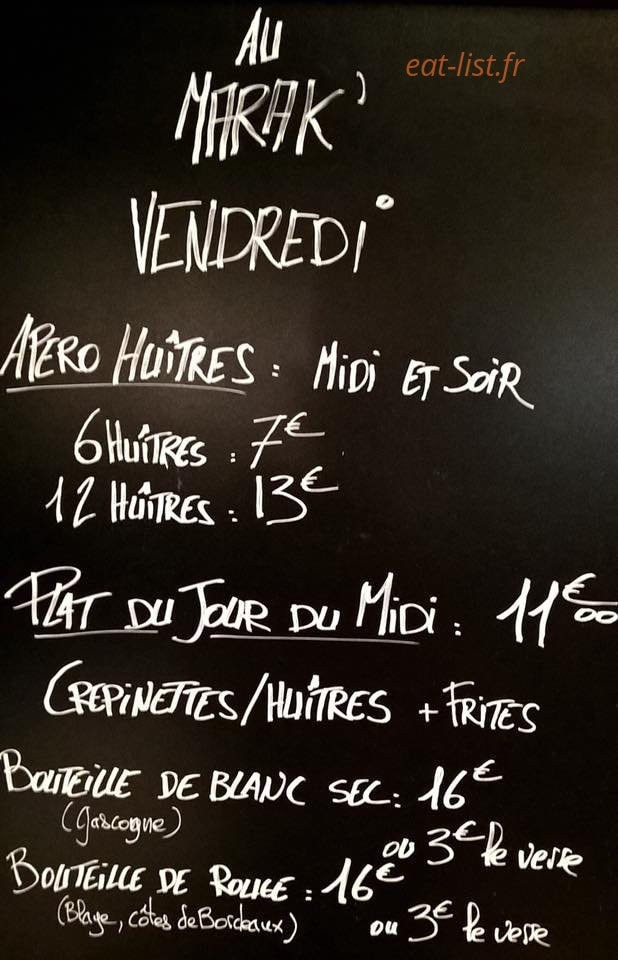 AU
eat-list.fr
MARAK'
VENDREDI
APERO HUÎTRES : MIDI ET SOIR
6 HUÎTRES : 7€
12 HUÎTRES : 13€
PLAT DU JOUR DU MIDI : 11€00
CREPINETTES/HUÎTRES + FRITES
BOUTEILLE DE BLANC SEC : 16€
(Gascogne)
ou 3€ le verre
BOUTEILLE DE ROUGE : 16€
(Blaye, côtes de Bordeaux)
ou 3€ le verre